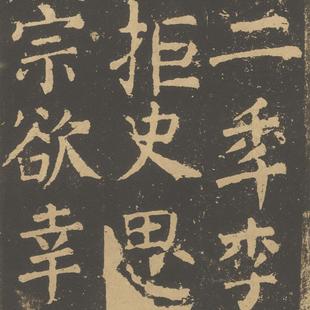 二秊李
拒史思
宗欲幸